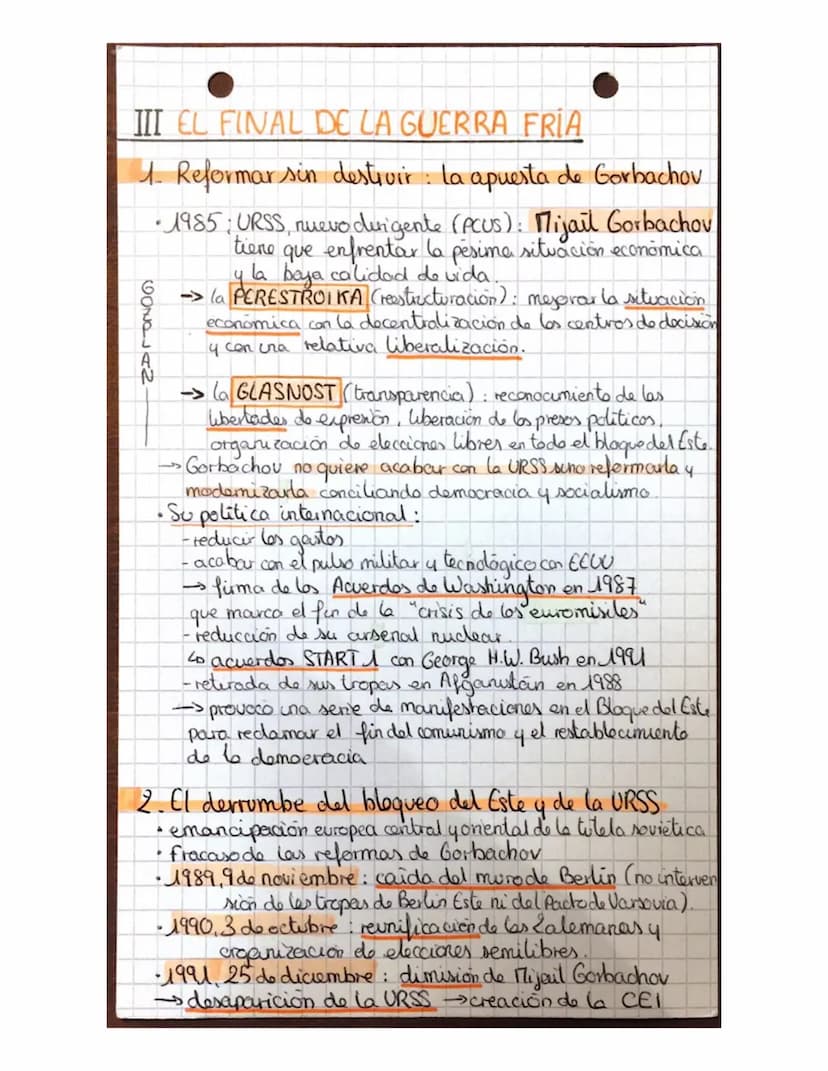 III EL FINAL DE LA GUERRA FRÍA
1. Reformar sin destruir : la apuesta de Gorbachov
· 1985 : URSS, nuevo dirigente (PCUS) : Mijaïl Gorbachov
tiene que enfrentar la pésima situación económica
y la baja calidad de vida.
GOZPLAN
-> la PERESTROIKA (reestructuración) : mejorar la situación
económica con la decentralización de los centros de decisión
y con una relativa liberalización.
-> la GLASNOST (transparencia) : reconocimiento de las
libertades de expresión, liberación de los presos políticos,
organización de elecciones libres en todo el bloque del Este.
-> Gorbachov no quiere acabar con la URSS sino reformarla y
modernizarla conciliando democracia y socialismo.
· Su política internacional :
- reducir los gastos
- acabar con el pulso militar y tecnológico con EEUU
-> firma de los Acuerdos de Washington en 1987
que marca el fin de la "crisis de los euromisiles"
- reducción de su arsenal nuclear.
↳ acuerdos START 1 con George H.W. Bush en 1991
- retirada de sus tropas en Afganistán en 1988
-> provocó una serie de manifestaciones en el Bloque del Este
para reclamar el fin del comunismo y el restablecimiento
de la democracia
2. El derrumbe del bloqueo del Este y de la URSS
· emancipación europea central y oriental de la tutela soviética
· fracaso de las reformas de Gorbachov
· 1989, 9 de noviembre : caída del muro de Berlín (no interven
sión de las tropas de Berlín Este ni del Pacto de Varsovia).
· 1990, 3 de octubre : reunificación de las 2 alemanas y
organización de elecciones semilibres.
· 1991, 25 de diciembre : dimisión de Mijail Gorbachov
-> desaparición de la URSS -> creación de la CEI